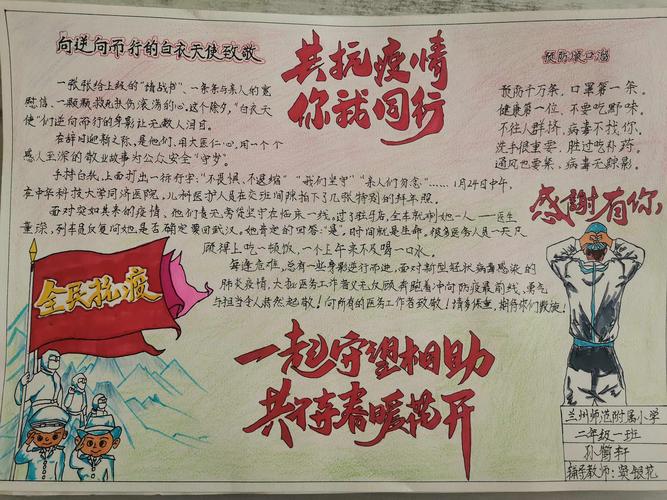 向逆向而行的白衣天使致敬
共抗疫情
你我同行
预防顺口溜
一张张给上级的“请战书”、一条条与亲人的宽
慰信、一颗颗救死扶伤滚汤的心。这个除夕,“白衣天
使”们逆向而行的身影让无数人泪目。
在辞旧迎新之际,是他们,用大医仁心,用一个个
感人至深的敬业故事为公众安全“守岁”。
手持白纸,上面打出一行行字:“不畏惧,不退缩” “我们坚守” “亲人们勿念”……1月24日中午,
在华中科技大学同济医院,儿科医护人员在交班间隙拍下了几张特别的拜年照。
面对突如其来的疫情,他们责无旁贷坚守在临床一线。过了驻马店,全车就剩她一人——医生
董琼,列车员反复问她,是否确定要回武汉,她肯定的回答:“是”。时间就是生命,很多医务人员一天只
顾得上吃一顿饭,一个上午来不及喝一口水。
每逢危难,总有一些身影逆行而进。面对新型冠状病毒感染的
肺炎疫情,大批医务工作者义无反顾奔跑着冲向防疫最前线,勇气
与担当令人肃然起敬!向所有的医务工作者致敬!请多保重,期待你们凯旋!
预防千万条,口罩第一条。
健康第一位,不要吃野味。
不往人群挤,病毒不找你。
洗手很重要,胜过吃补药。
通风也要紧,病毒无踪影。
感谢有你,
全民抗疫
一起守望相助
共待春暖花开
兰州师范附属小学
二年级一班
辅导教师:窦银花